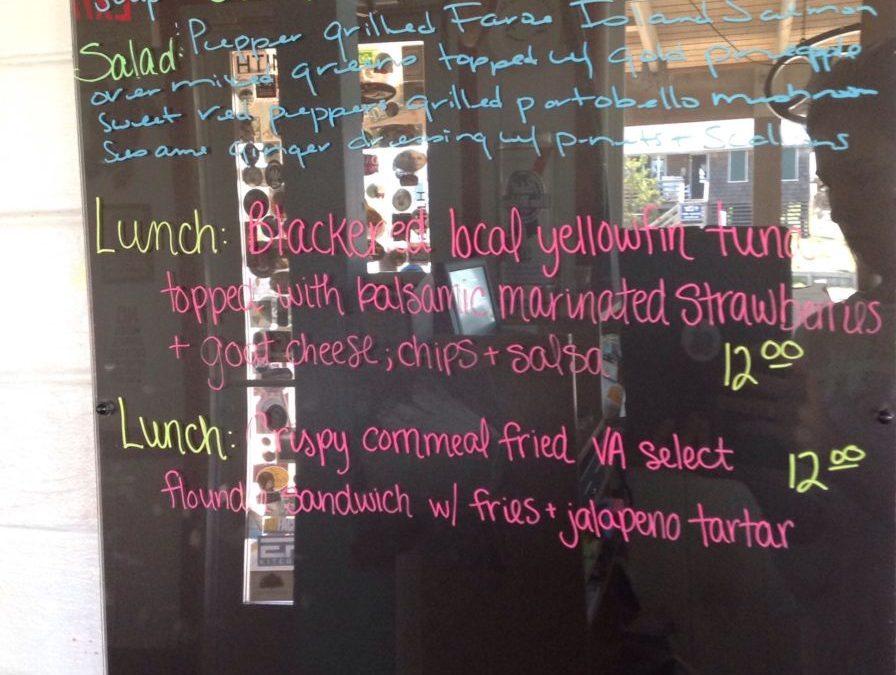 Soup
Salad: Pepper grilled Faroe Island Salmon
over mixed greens topped w/ gold pineapple
sweet red peppers grilled portobello mushroom
Sesame ginger dressing w/ p-nuts + Scallions
Lunch: Blackened local yellowfin tuna
topped with balsamic marinated Strawberries
+ goat cheese; chips + salsa 12⁰⁰
Lunch: Crispy cornmeal fried VA select 12⁰⁰
flounder sandwich w/ fries + jalapeno tartar